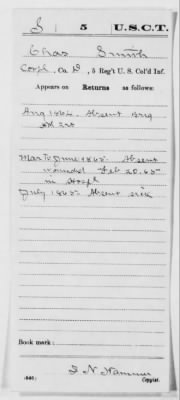 S 5 U.S.C.T.
Chas Smith
Corpl, Co. D, 5 Reg't U. S. Col'd Inf.
Appears on Returns as follows:
Aug 1864. Absent Brig
Mar to June 1865. Absent
wounded Feb 20. 65
in Hospl
July 1865. Absent sick
Book mark:
(546) Copyist.